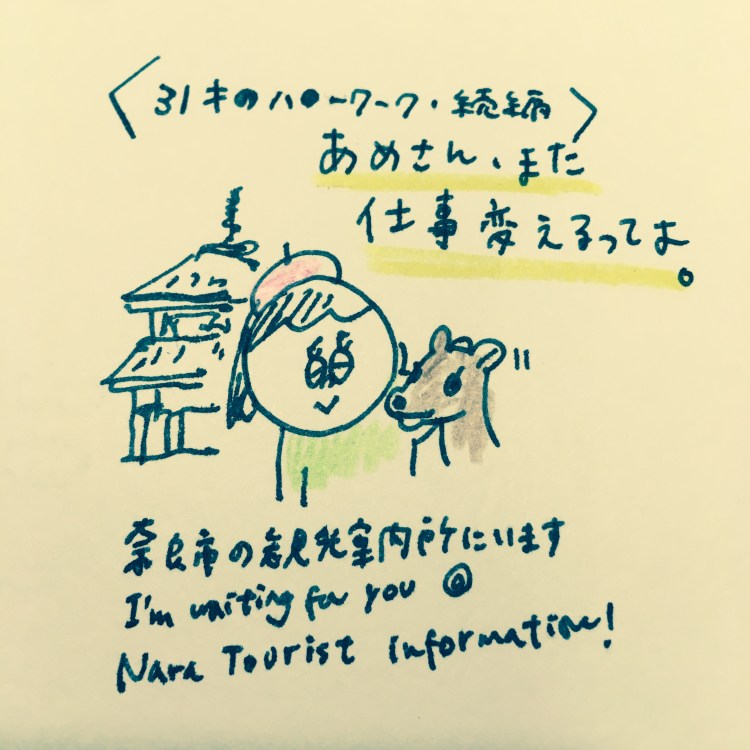 〈31才のハローワーク・続編〉
あめさん、また
仕事変えるってよ。
奈良市の観光案内所にいます
I'm waiting for you @
Nara Tourist Information!